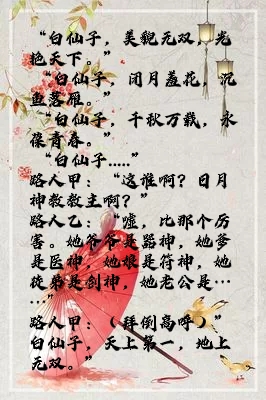 “白仙子，美貌无双，光
艳天下。”
“白仙子，闭月羞花，沉
鱼落雁。”
“白仙子，千秋万载，永
葆青春。”
“白仙子……”
路人甲：“这谁啊？日月
神教教主啊？”
路人乙：“嘘，比那个厉
害。她爷爷是器神，她爹
是医神，她娘是符神，她
徒弟是剑神，她老公是…
…”
路人甲：（拜倒高呼）”
白仙子，天上第一，地上
无双。”